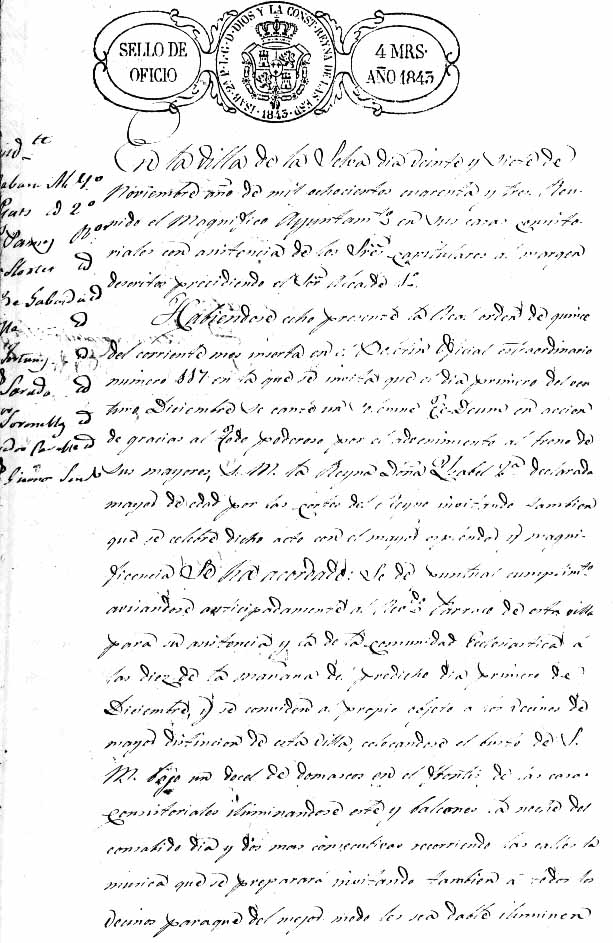 SELLO DE
OFICIO
ISAB. 2ª P. L. G. D. DIOS Y LA CONST. REYNA DE LAS ESP.
1843
4 MRS.
AÑO 1843
En la Villa de la Selva dia veinte y siete de
Noviembre año de mil ochocientos cuarenta y tres. Reu-
nido el Magnifico Ayuntamto en sus casas consisto-
riales con asistencia de los Sres capitulares al margen
descritos presidiendo el Sor Alcalde 1º.
Habiendose echo presente la Real orden de quince
del corriente mes inserta en el Boletin Oficial extraordinario
numero 117 en la que se invita que el dia primero del
Diciembre se cante un solemne Te Deum en accion
de gracias al Todo poderoso por el advenimiento al trono de
sus mayores, S. M. la Reyna Doña Ysabel 2ª declarada
mayor de edad por las cortes del Reyno invitando tambien
que se celebre dicho acto con el mayor esplendor y magni-
ficencia Se ha acordado: Se dé puntual cumplimto
avisandose anticipadamente al Rdo Parroco de esta villa
para su asistencia y la de la comunidad Eclesiastica á
las diez de la mañana del predicho dia primero de
Diciembre, y se conviden al propio objeto a los vecinos de
mayor distincion de esta villa, colocandose el busto de S.
M. bajo un docel de domascos en el de las casas
consistoriales iluminandose este y balcones la noche del
consabido dia y dos mas consecutivos recorriendo las calles la
musica que se preparará invitando tambien á todos los
vecinos paraque del mejor modo les sea dable iluminen